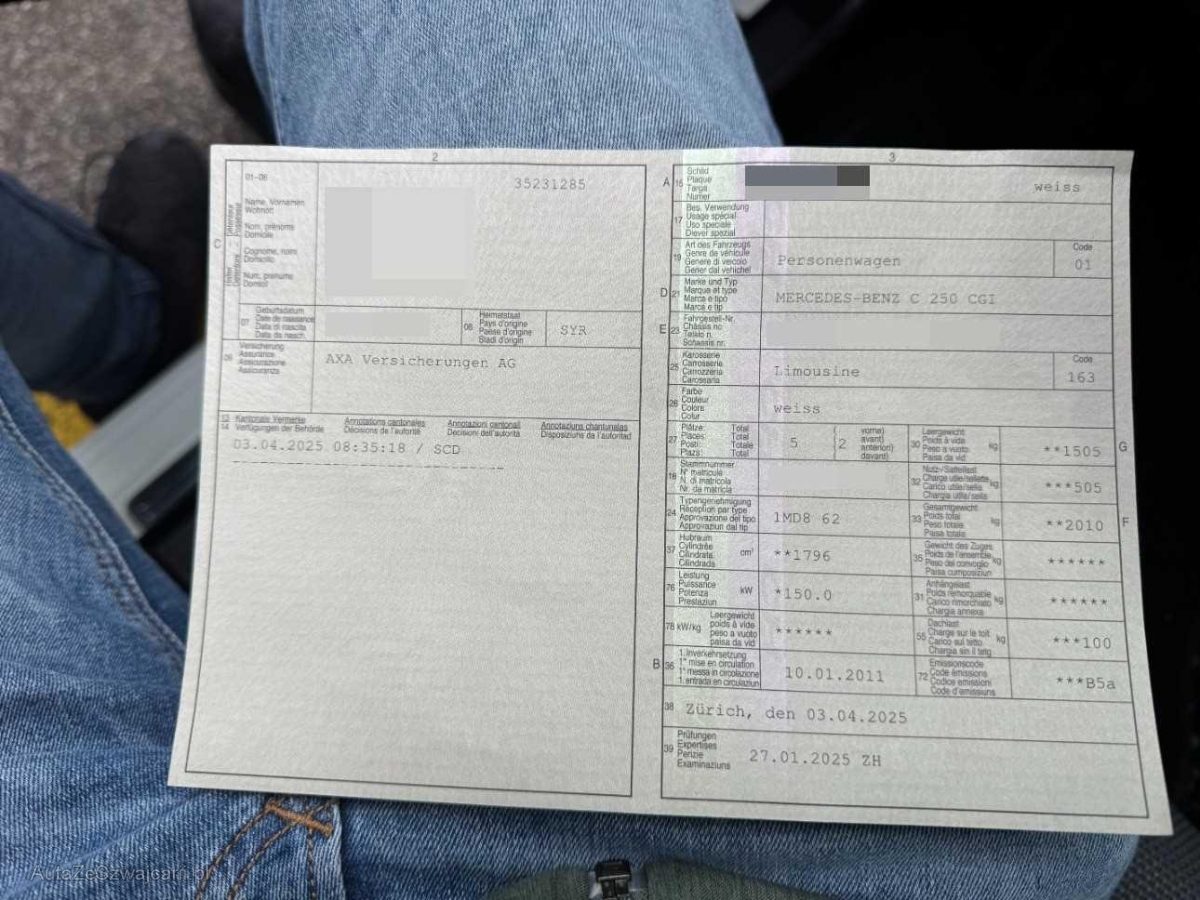 2
01-06
35231285
Halter Détenteur Detentore Possessur
C
Name, Vornamen
Wohnort
Nom, prénoms
Domicile
Cognome, nomi
Domicilio
Num, prenums
Domicil
07
Geburtsdatum
Date de naissance
Data di nascita
Data da nasch.
08
Heimatstaat
Pays d'origine
Paese d'origine
Stadi d'origin
SYR
09
Versicherung
Assurance
Assicurazione
Assicuranza
AXA Versicherungen AG
13
14
Kantonale Vermerke
Verfügungen der Behörde
Annotations cantonales
Décisions de l'autorité
Annotazioni cantonali
Decisioni dell'autorità
Annotaziuns chantunalas
Disposiziuns da l'autoritad
03.04.2025 08:35:18 / SCD
3
A 15
Schild
Plaque
Targa
Numer
weiss
17
Bes. Verwendung
Usage spécial
Uso speciale
Diever spezial
19
Art des Fahrzeugs
Genre de véhicule
Genere di veicolo
Gener dal vehichel
Personenwagen
Code
01
D 21
Marke und Typ
Marque et type
Marca e tipo
Marca e tip
MERCEDES-BENZ C 250 CGI
E 23
Fahrgestell-Nr.
Châssis no
Telaio n.
Schassis nr.
25
Karosserie
Carrosserie
Carrozzeria
Carossaria
Limousine
Code
163
26
Farbe
Couleur
Colore
Colur
weiss
27
Plätze: Total
Places: Total
Posti: Totale
Plazs: Total
5
( 2
vorne)
avant)
anteriori)
davant)
30
Leergewicht
Poids à vide
Peso a vuoto
Paisa da vid
kg
**1505
G
18
Stammnummer
N° matricule
N. di matricola
Nr. da matricla
32
Nutz-/Sattellast
Charge utile/sellette
Carico utile/sella
Chargia utila/sella
kg
***505
24
Typengenehmigung
Réception par type
Approvazione del tipo
Approvaziun dal tip
1MD8 62
33
Gesamtgewicht
Poids total
Peso totale
Paisa totala
kg
**2010
F
37
Hubraum
Cylindrée
Cilindrata
Cilindrada
cm³
**1796
35
Gewicht des Zuges
Poids de l'ensemble
Peso del convoglio
Paisa cumposiziun
kg
******
76
Leistung
Puissance
Potenza
Prestaziun
kW
*150.0
31
Anhängelast
Poids remorquable
Carico rimorchiato
Chargia annexa
kg
******
78 kW/kg
Leergewicht
poids à vide
peso a vuoto
paisa da vid
******
55
Dachlast
Charge sur le toit
Carico sul tetto
Chargia sin il tetg
kg
***100
B 36
1. Inverkehrsetzung
1re mise en circulation
1a messa in circolazione
1. entrada en circulaziun
10.01.2011
72
Emissionscode
Code émissions
Codice emissioni
Code d'emissiuns
***B5a
38
Zürich, den 03.04.2025
39
Prüfungen
Expertises
Perizie
Examinaziuns
27.01.2025 ZH
AutaZeSzwajcarii.pl